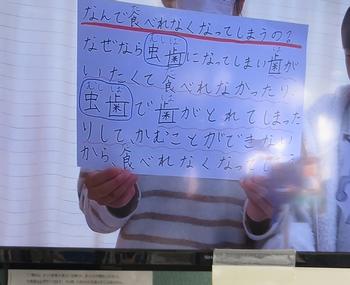 なんで食べれなくなってしまうの?
なぜなら虫歯になってしまい歯が
いたくて食べれなかったり、
虫歯で歯がとれてしまった
りして、かむことができない
から食べれなくなって